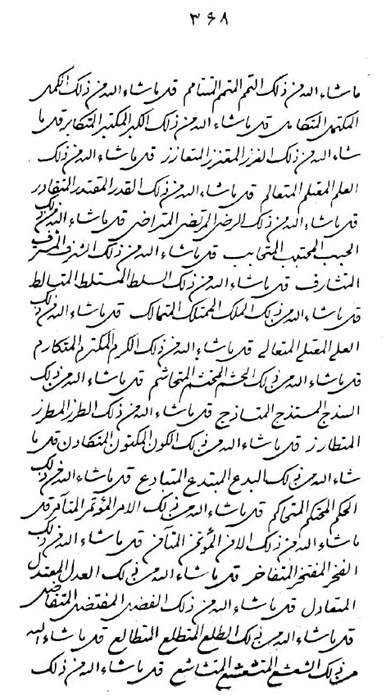 ۳۶۸
ماشاء الله من ذلك التمم المتمم المتتامم قل ماشاء الله من ذلك الكمل
المكتمل المتكامل قل ماشاء الله من ذلك الكبر المكتبر المتكابر قل ما
شاء الله من ذلك العزز المعتزز المتعازز قل ماشاء الله من ذلك
العلم المعتلم المتعالم قل ماشاء الله من ذلك القدر المقتدر المتقادر
قل ماشاء الله من ذلك الرضی المرتضی المتراضی قل ماشاء الله من ذلك
الحبب المحتبب المتحابب قل ماشاء الله من ذلك الشرف المشترف
المتشارف قل ماشاء الله من ذلك السلط المستلط المتسالط
قل ماشاء الله من ذلك الملك الممتلك المتمالك قل ماشاء الله من ذلك
العلی المعتلی المتعالی قل ماشاء الله من ذلك الكرم المكترم المتكارم
قل ماشاء الله من ذلك الحشم المحتشم المتحاشم قل ماشاء الله من ذلك
السذج المستذج المتساذج قل ماشاء الله من ذلك الطرز المطرز
المتطارز قل ماشاء الله من ذلك الكون المكتون المتكاون قل ما
شاء الله من ذلك البدع المبتدع المتبادع قل ماشاء الله من ذلك
الحكم المحتكم المتحاكم قل ماشاء الله من ذلك الامر المؤتمر المتآمر قل
ماشاء الله من ذلك الامن المؤتمن المتآمن قل ماشاء الله من ذلك
الفخر المفتخر المتفاخر قل ماشاء الله من ذلك العدل المعتدل
المتعادل قل ماشاء الله من ذلك الفضل المفتضل المتفاضل
قل ماشاء الله من ذلك الطلع المتطلع المتطالع قل ماشاء الله
من ذلك الشعشع المتشعشع قل ماشاء الله من ذلك